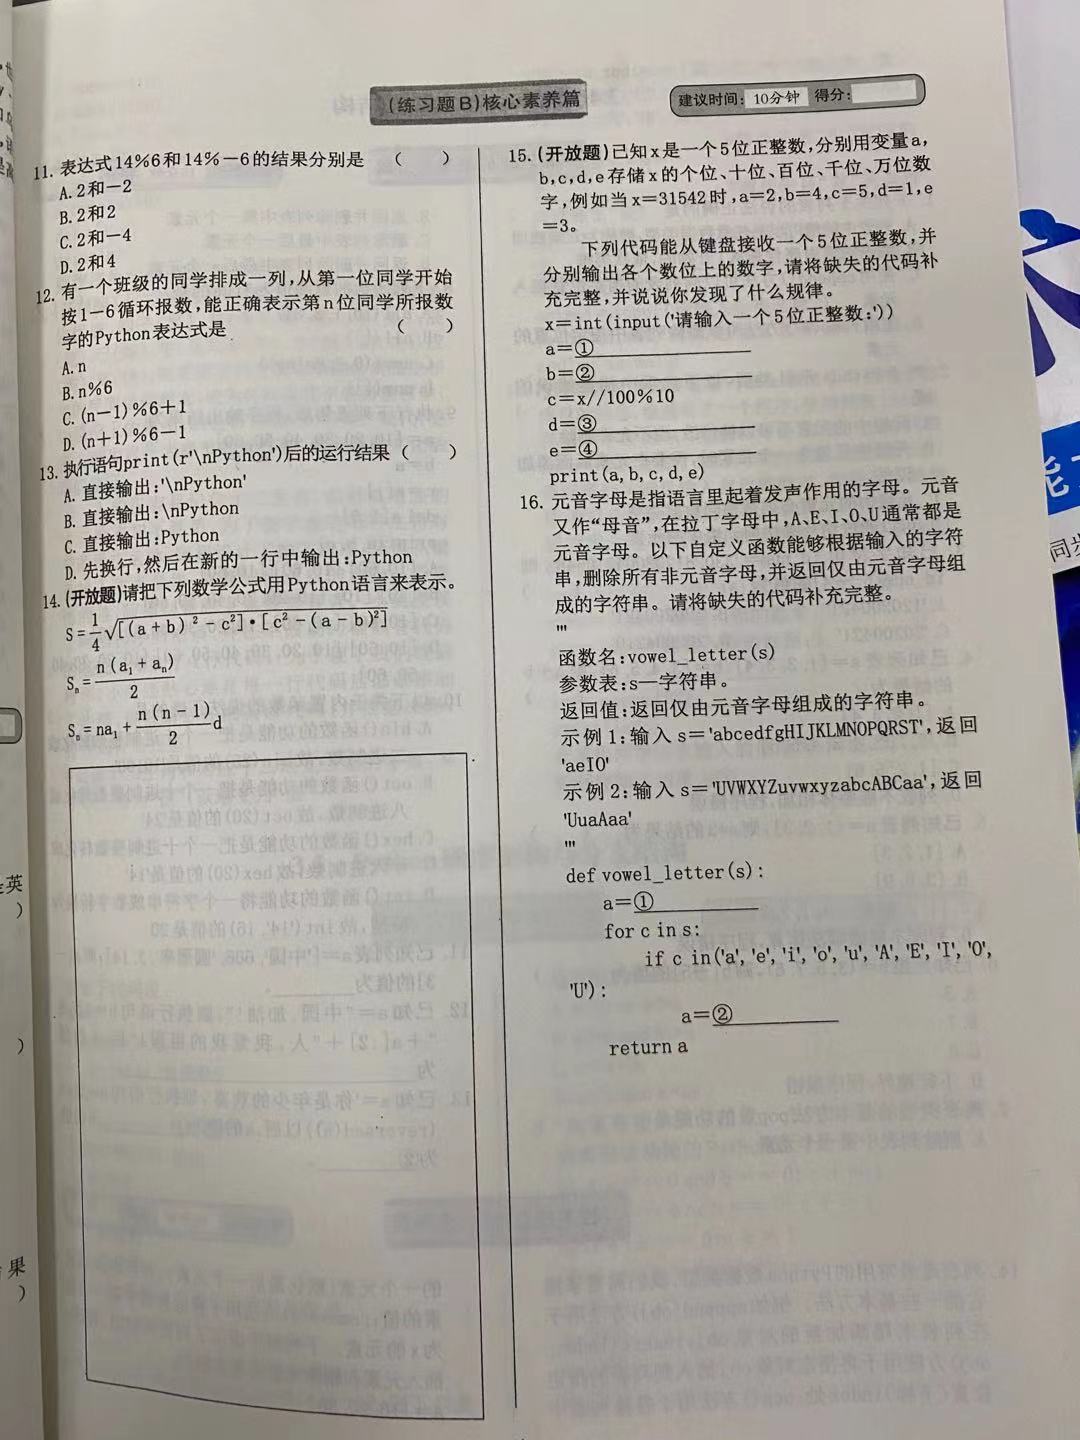 (练习题B)核心素养篇
建议时间:10分钟 得分:
11. 表达式14%6和14%-6的结果分别是 ( )
A. 2和-2
B. 2和2
C. 2和-4
D. 2和4
12. 有一个班级的同学排成一列,从第一位同学开始
按1-6循环报数,能正确表示第n位同学所报数
字的Python表达式是 ( )
A. n
B. n%6
C. (n-1)%6+1
D. (n+1)%6-1
13. 执行语句print(r'\nPython')后的运行结果 ( )
A. 直接输出:'\nPython'
B. 直接输出:\nPython
C. 直接输出:Python
D. 先换行,然后在新的一行中输出:Python
14. (开放题)请把下列数学公式用Python语言来表示。
S=1/4√[(a+b)²-c²]•[c²-(a-b)²]
Sₙ=n(a₁+aₙ)/2
Sₙ=na₁+n(n-1)/2d
15. (开放题)已知x是一个5位正整数,分别用变量a,
b,c,d,e存储x的个位、十位、百位、千位、万位数
字,例如当x=31542时,a=2,b=4,c=5,d=1,e
=3。
下列代码能从键盘接收一个5位正整数,并
分别输出各个数位上的数字,请将缺失的代码补
充完整,并说说你发现了什么规律。
x=int(input('请输入一个5位正整数:'))
a=①
b=②
c=x//100%10
d=③
e=④
print(a,b,c,d,e)
16. 元音字母是指语言里起着发声作用的字母。元音
又作“母音”,在拉丁字母中,A、E、I、O、U通常都是
元音字母。以下自定义函数能够根据输入的字符
串,删除所有非元音字母,并返回仅由元音字母组
成的字符串。请将缺失的代码补充完整。
'''
函数名:vowel_letter(s)
参数表:s—字符串。
返回值:返回仅由元音字母组成的字符串。
示例1:输入s='abcedfgHIJKLMNOPQRST',返回
'aeIO'
示例2:输入s='UVWXYZuvwxyzabcABCaa',返回
'UuaAaa'
'''
def vowel_letter(s):
a=①
for c in s:
if c in('a','e','i','o','u','A','E','I','O',
'U'):
a=②
return a
英
)
)
果
)
同步